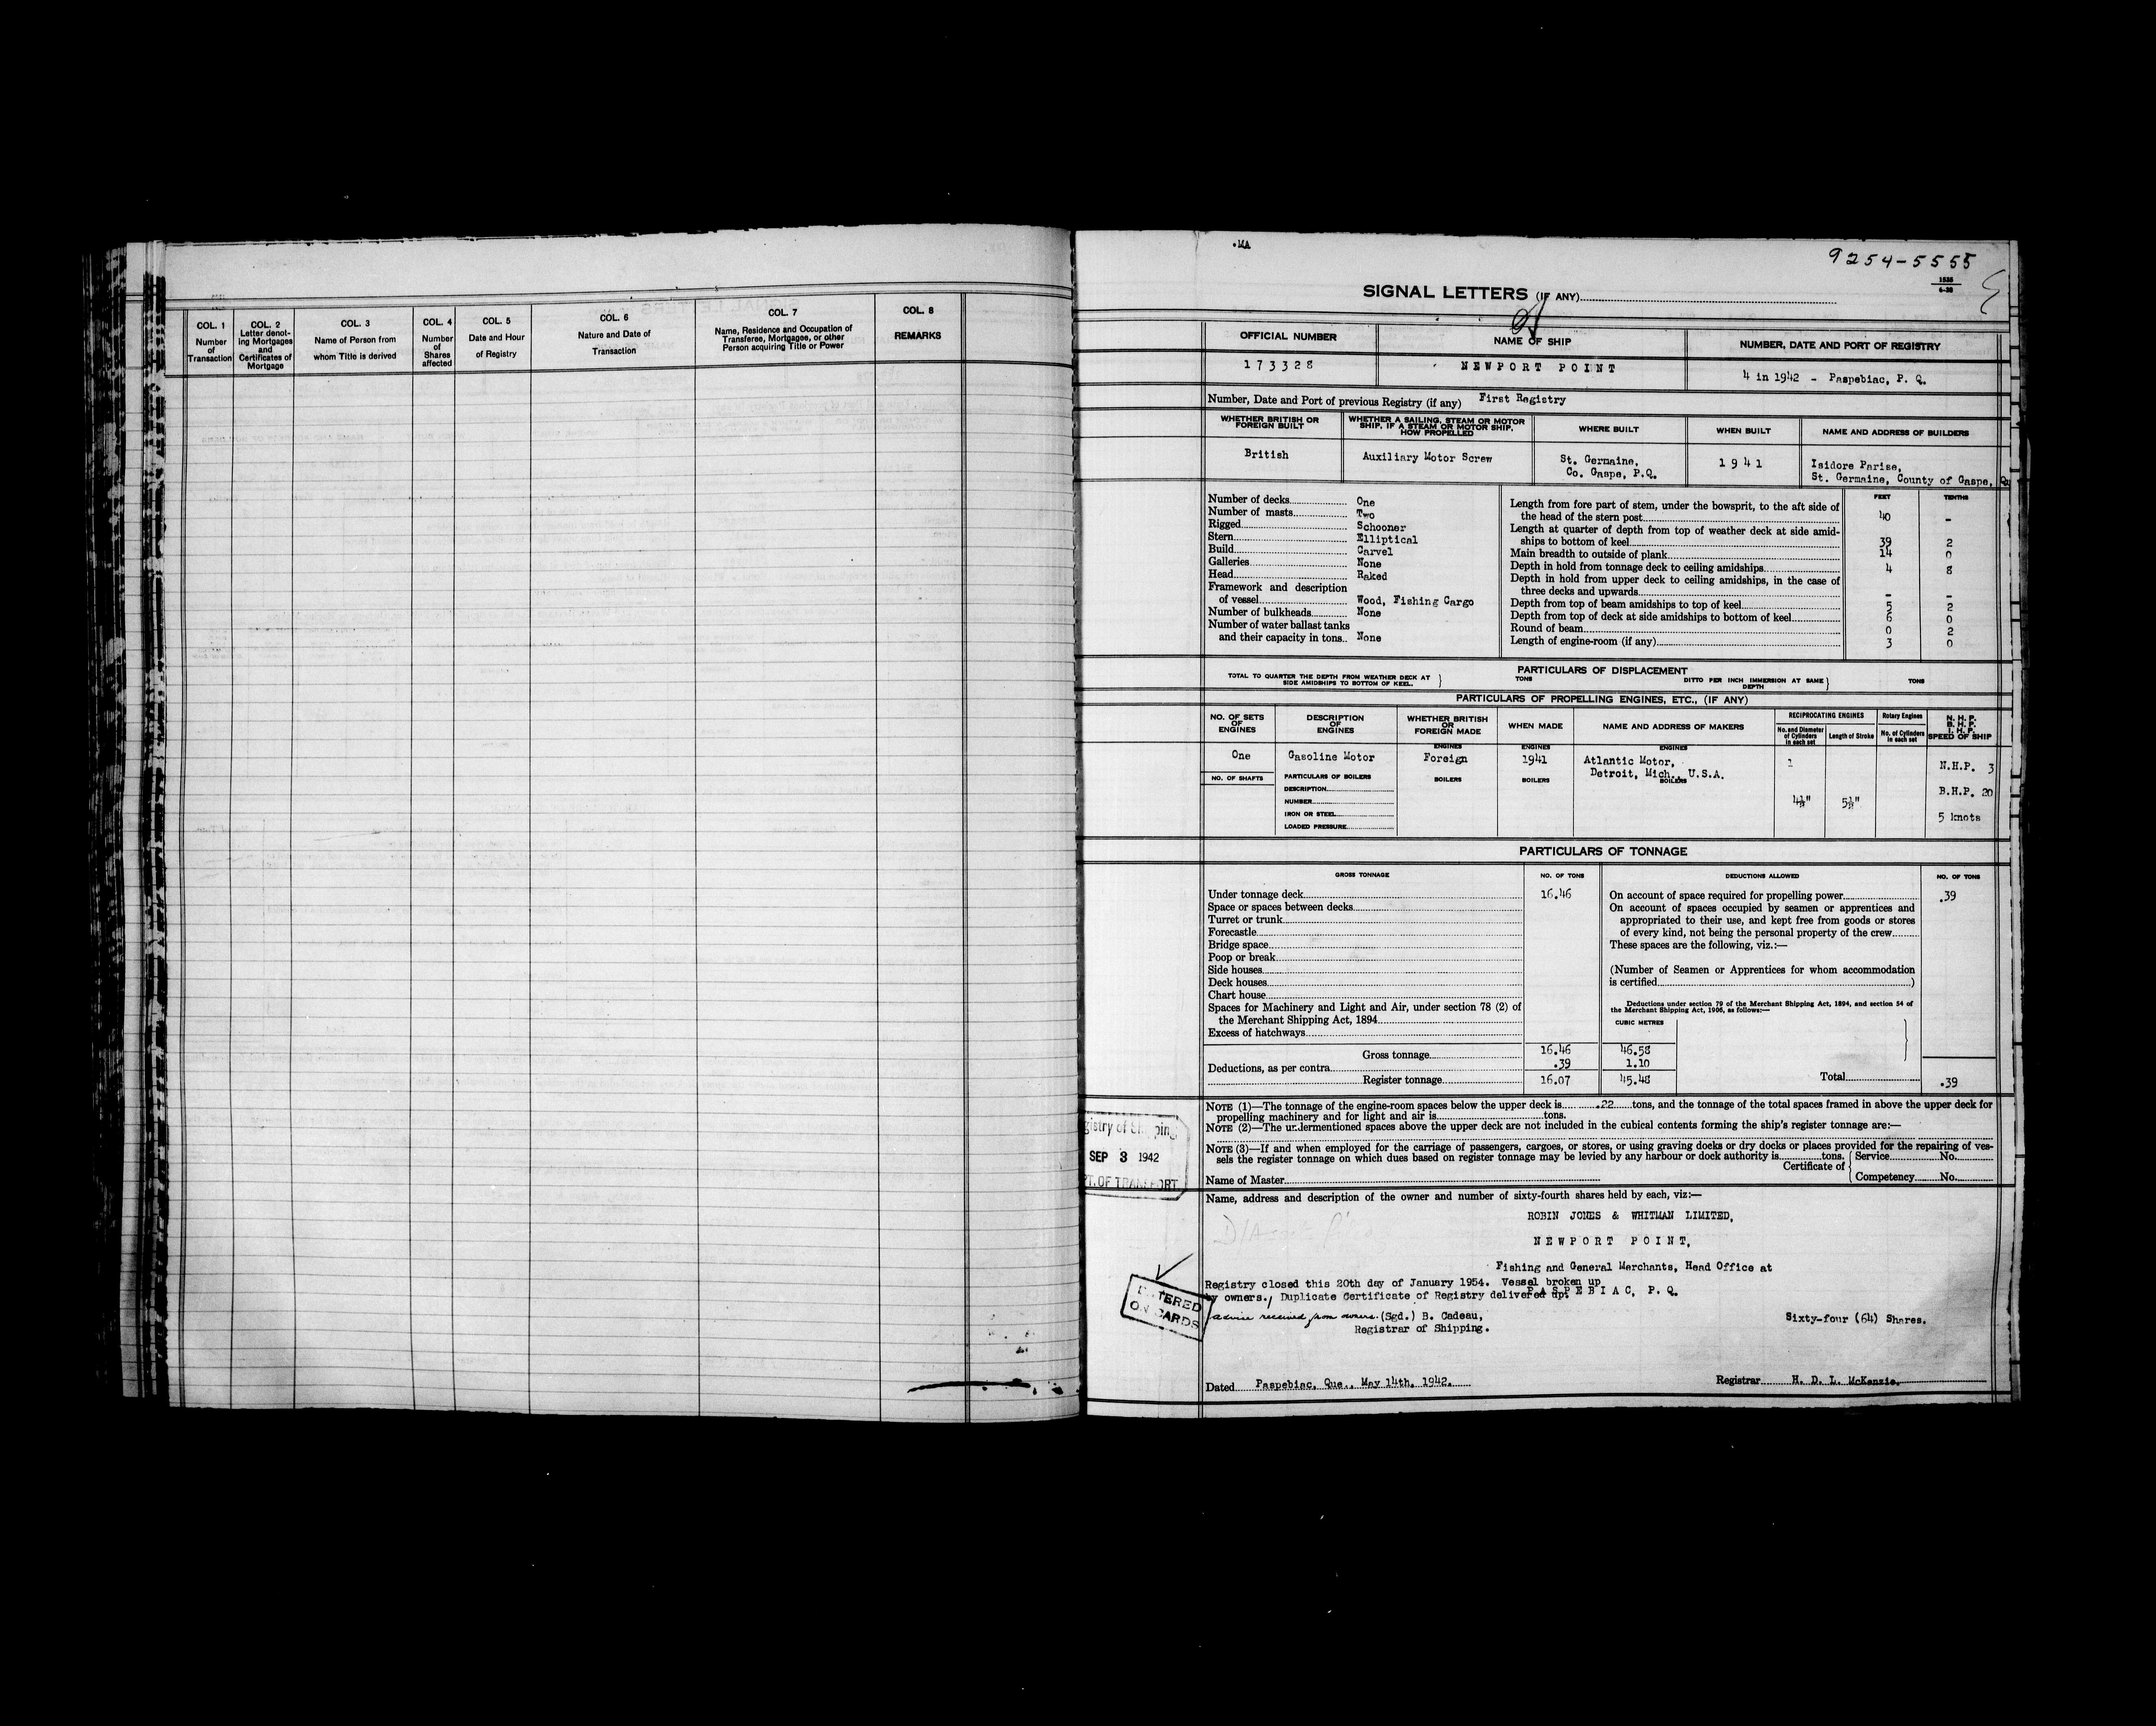 COL. 1
Number
of
Transaction
COL. 2
Letter denot-
ing Mortgages
and
Certificates of
Mortgage
COL. 3
Name of Person from
whom Title is derived
COL. 4
Number
of
Shares
affected
COL. 5
Date and Hour
of Registry
COL. 6
Nature and Date of
Transaction
COL. 7
Name, Residence and Occupation of
Transferee, Mortgagee, or other
Person acquiring Title or Power
COL. 8
REMARKS
.MA
9254-5555
1535
6-38
SIGNAL LETTERS (IF ANY)
OFFICIAL NUMBER
NAME OF SHIP
NUMBER, DATE AND PORT OF REGISTRY
173328
NEWPORT POINT
4 in 1942 - Paspebiac, P. Q.
Number, Date and Port of previous Registry (if any) First Registry
WHETHER BRITISH OR
FOREIGN BUILT
WHETHER A SAILING, STEAM OR MOTOR
SHIP, IF A STEAM OR MOTOR SHIP,
HOW PROPELLED
WHERE BUILT
WHEN BUILT
NAME AND ADDRESS OF BUILDERS
British
Auxiliary Motor Screw
St. Germaine,
Co. Gaspe, P.Q.
1941
Isidore Parise,
St. Germaine, County of Gaspe, Qu
Number of decks One
Number of masts Two
Rigged Schooner
Stern Elliptical
Build Carvel
Galleries None
Head Raked
Framework and description
of vessel Wood, Fishing Cargo
Number of bulkheads None
Number of water ballast tanks
and their capacity in tons.. None
FEET TENTHS
Length from fore part of stem, under the bowsprit, to the aft side of
the head of the stern post 40 -
Length at quarter of depth from top of weather deck at side amid-
ships to bottom of keel 39 2
Main breadth to outside of plank 14 0
Depth in hold from tonnage deck to ceiling amidships 4 8
Depth in hold from upper deck to ceiling amidships, in the case of
three decks and upwards - -
Depth from top of beam amidships to top of keel 5 2
Depth from top of deck at side amidships to bottom of keel 6 0
Round of beam 0 2
Length of engine-room (if any) 3 0
PARTICULARS OF DISPLACEMENT
TOTAL TO QUARTER THE DEPTH FROM WEATHER DECK AT
SIDE AMIDSHIPS TO BOTTOM OF KEEL.
TONS
DITTO PER INCH IMMERSION AT SAME
DEPTH
TONS
PARTICULARS OF PROPELLING ENGINES, ETC., (IF ANY)
NO. OF SETS
OF
ENGINES
DESCRIPTION
OF
ENGINES
WHETHER BRITISH
OR
FOREIGN MADE
WHEN MADE
NAME AND ADDRESS OF MAKERS
RECIPROCATING ENGINES
No. and Diameter
of Cylinders
in each set
Length of Stroke
Rotary Engines
No. of Cylinders
in each set
N. H. P.
B. H. P.
I. H. P.
SPEED OF SHIP
ENGINES
ENGINES
ENGINES
One
Gasoline Motor
Foreign
1941
Atlantic Motor,
Detroit, Mich., U.S.A.
N.H.P. 3
B.H.P. 20
5 knots
NO. OF SHAFTS
PARTICULARS OF BOILERS
DESCRIPTION
NUMBER
IRON OR STEEL
LOADED PRESSURE
BOILERS
BOILERS
BOILERS
PARTICULARS OF TONNAGE
GROSS TONNAGE
NO. OF TONS
DEDUCTIONS ALLOWED
NO. OF TONS
Under tonnage deck 16.46
Space or spaces between decks
Turret or trunk
Forecastle
Bridge space
Poop or break
Side houses
Deck houses
Chart house
Spaces for Machinery and Light and Air, under section 78 (2) of
the Merchant Shipping Act, 1894
Excess of hatchways
Gross tonnage 16.46 46.58
Deductions, as per contra .39 1.10
Register tonnage 16.07 45.48
On account of space required for propelling power .39
On account of spaces occupied by seamen or apprentices and
appropriated to their use, and kept free from goods or stores
of every kind, not being the personal property of the crew
These spaces are the following, viz.:—
(Number of Seamen or Apprentices for whom accommodation
is certified )
Deductions under section 79 of the Merchant Shipping Act, 1894, and section 54 of
the Merchant Shipping Act, 1906, as follows:—
CUBIC METRES
Total .39
NOTE (1)—The tonnage of the engine-room spaces below the upper deck is .22 tons, and the tonnage of the total spaces framed in above the upper deck for
propelling machinery and for light and air is tons.
NOTE (2)—The undermentioned spaces above the upper deck are not included in the cubical contents forming the ship's register tonnage are:—
NOTE (3)—If and when employed for the carriage of passengers, cargoes, or stores, or using graving docks or dry docks or places provided for the repairing of ves-
sels the register tonnage on which dues based on register tonnage may be levied by any harbour or dock authority is tons.
Certificate of
Service No.
Competency No.
Name of Master
gistry of Shipping
SEP 3 1942
PT. OF TRANSPORT
Name, address and description of the owner and number of sixty-fourth shares held by each, viz:—
ROBIN JONES & WHITMAN LIMITED,
NEWPORT POINT,
Fishing and General Merchants, Head Office at
PASPEBIAC, P. Q.
Registry closed this 20th day of January 1954. Vessel broken up
by owners., Duplicate Certificate of Registry delivered up.
advice received from owners. (Sgd.) B. Cadeau,
Registrar of Shipping.
Sixty-four (64) Shares.
ENTERED
ON CARDS
Dated Paspebiac, Que., May 14th, 1942.
Registrar H. D. L. McKenzie.